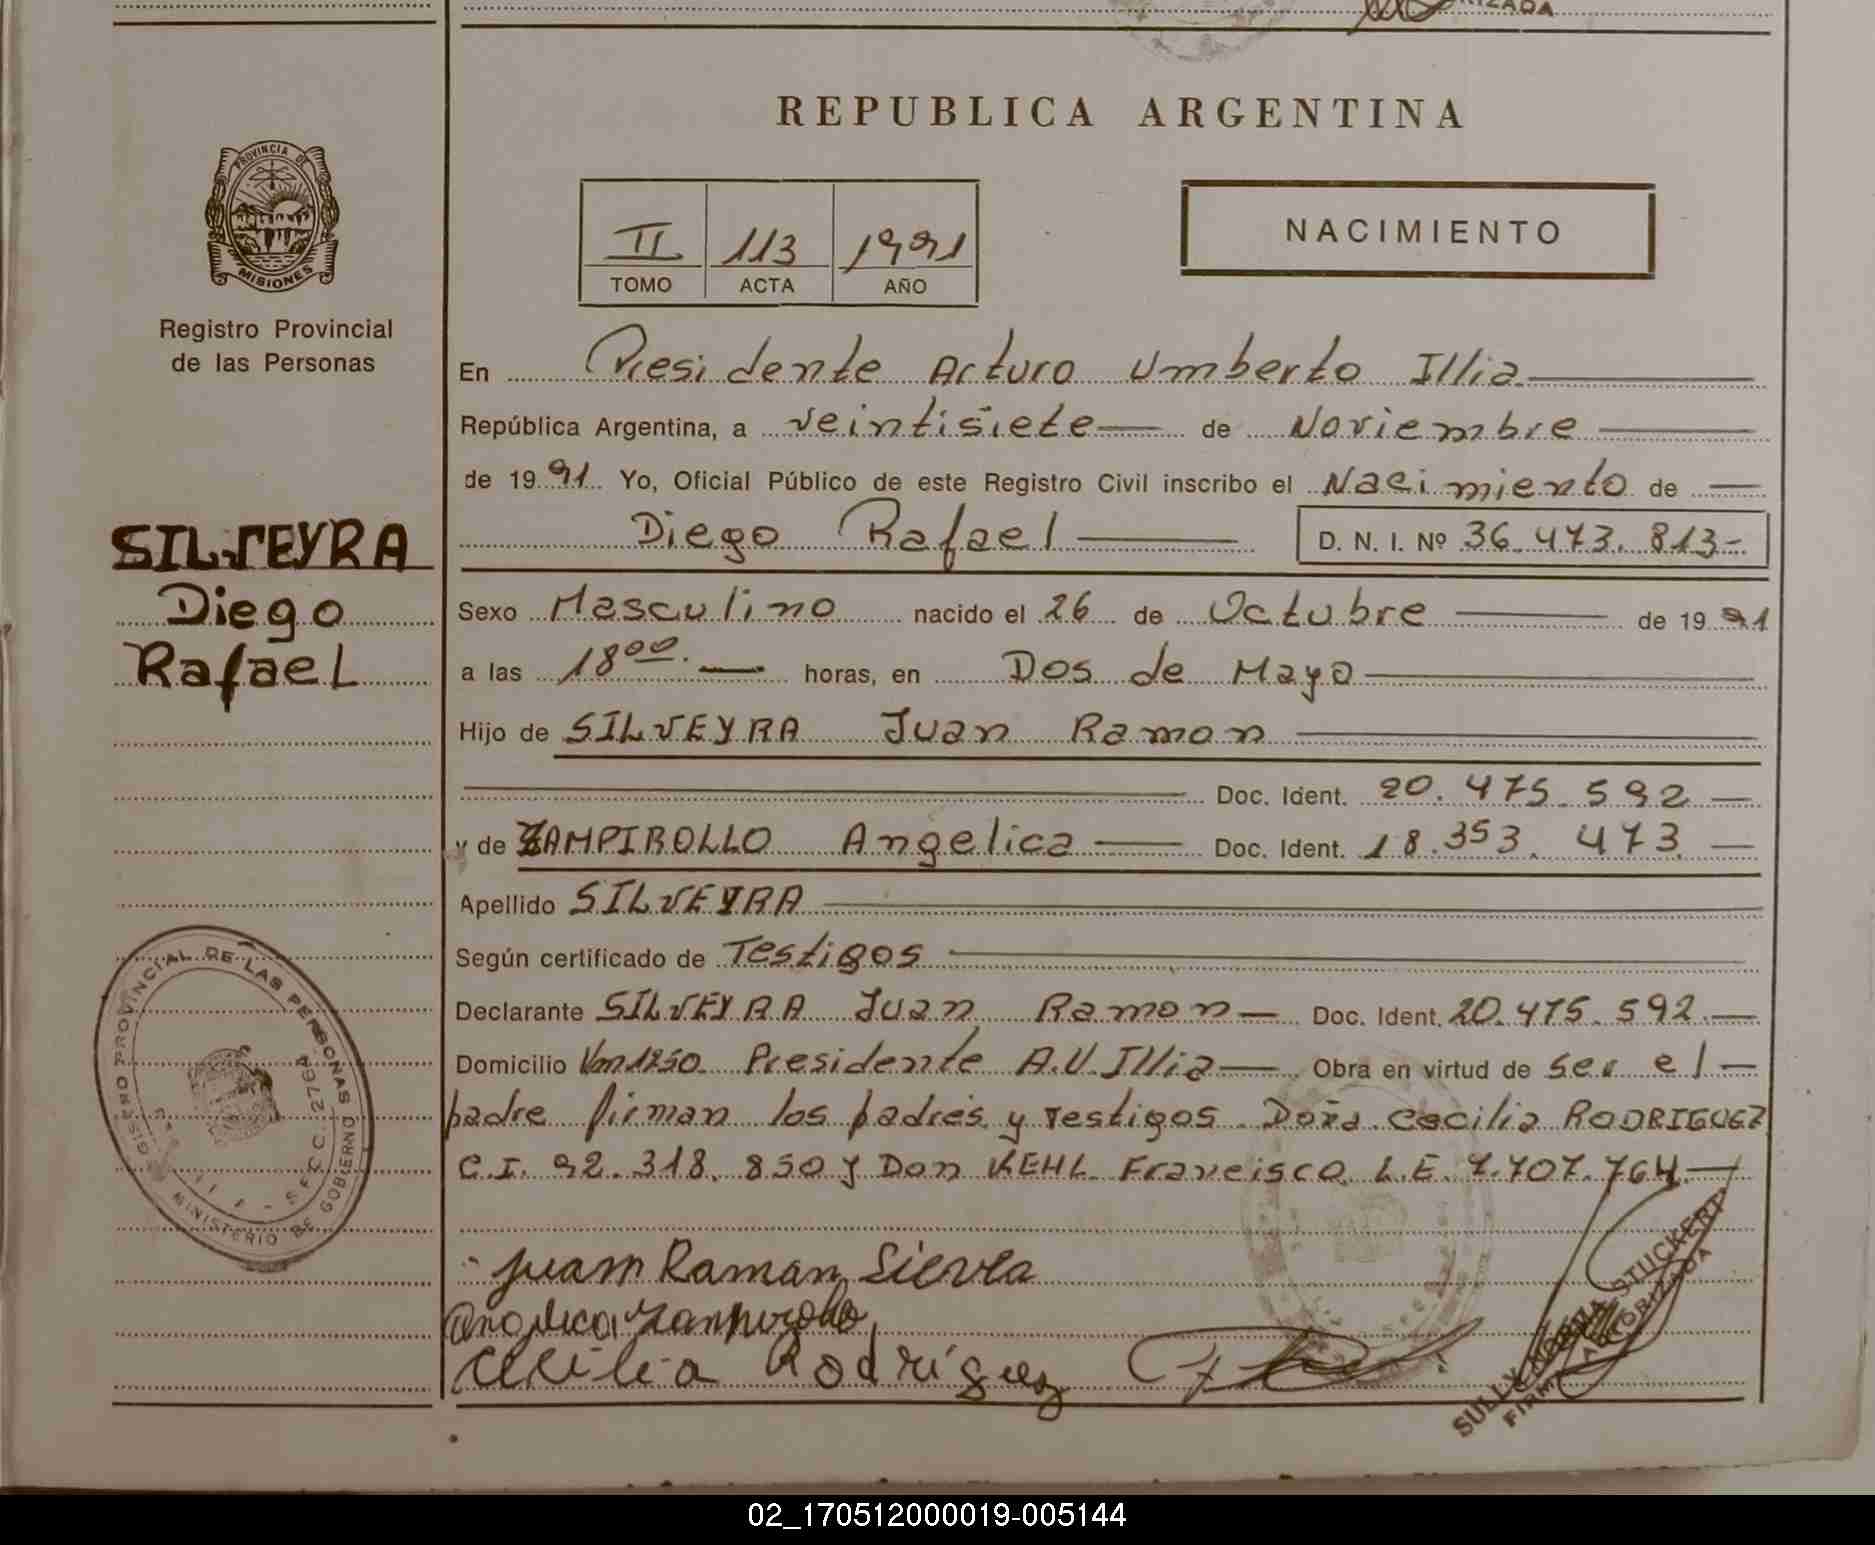 REPUBLICA ARGENTINA
PROVINCIA DE
MISIONES
Registro Provincial
de las Personas
II 113 1991
TOMO ACTA AÑO
NACIMIENTO
En Presidente Arturo Umberto Illia
República Argentina, a veintisiete de Noviembre
de 1991 Yo, Oficial Público de este Registro Civil inscribo el Nacimiento de
Diego Rafael D. N. I. Nº 36.473.813-
SILVEYRA
Diego
Rafael
Sexo Masculino nacido el 26 de Octubre de 1991
a las 18 00. horas, en Dos de Mayo
Hijo de SILVEYRA Juan Ramon
Doc. Ident. 20.475.592
y de ZAMPIROLLO Angelica Doc. Ident. 18.353.473
Apellido SILVEYRA
Según certificado de Testigos
Declarante SILVEYRA Juan Ramon Doc. Ident. 20.475.592.
Domicilio Km1250 Presidente A.U.Illia Obra en virtud de ser el
padre firman los padres y Testigos Doña Cecilia RODRIGUEZ
C.I. 92.318.850 y Don KEHL Francisco L.E. 7.707.764
REGISTRO PROVINCIAL DE LAS PERSONAS
S.F.C.C. 2764
MINISTERIO DE GOBIERNO
Juam Raman
Angelica Zampirollo
Cecilia Rodríguez
SULLY NORMA STUCKERT
FIRMA AUTORIZADA
02_170512000019-005144